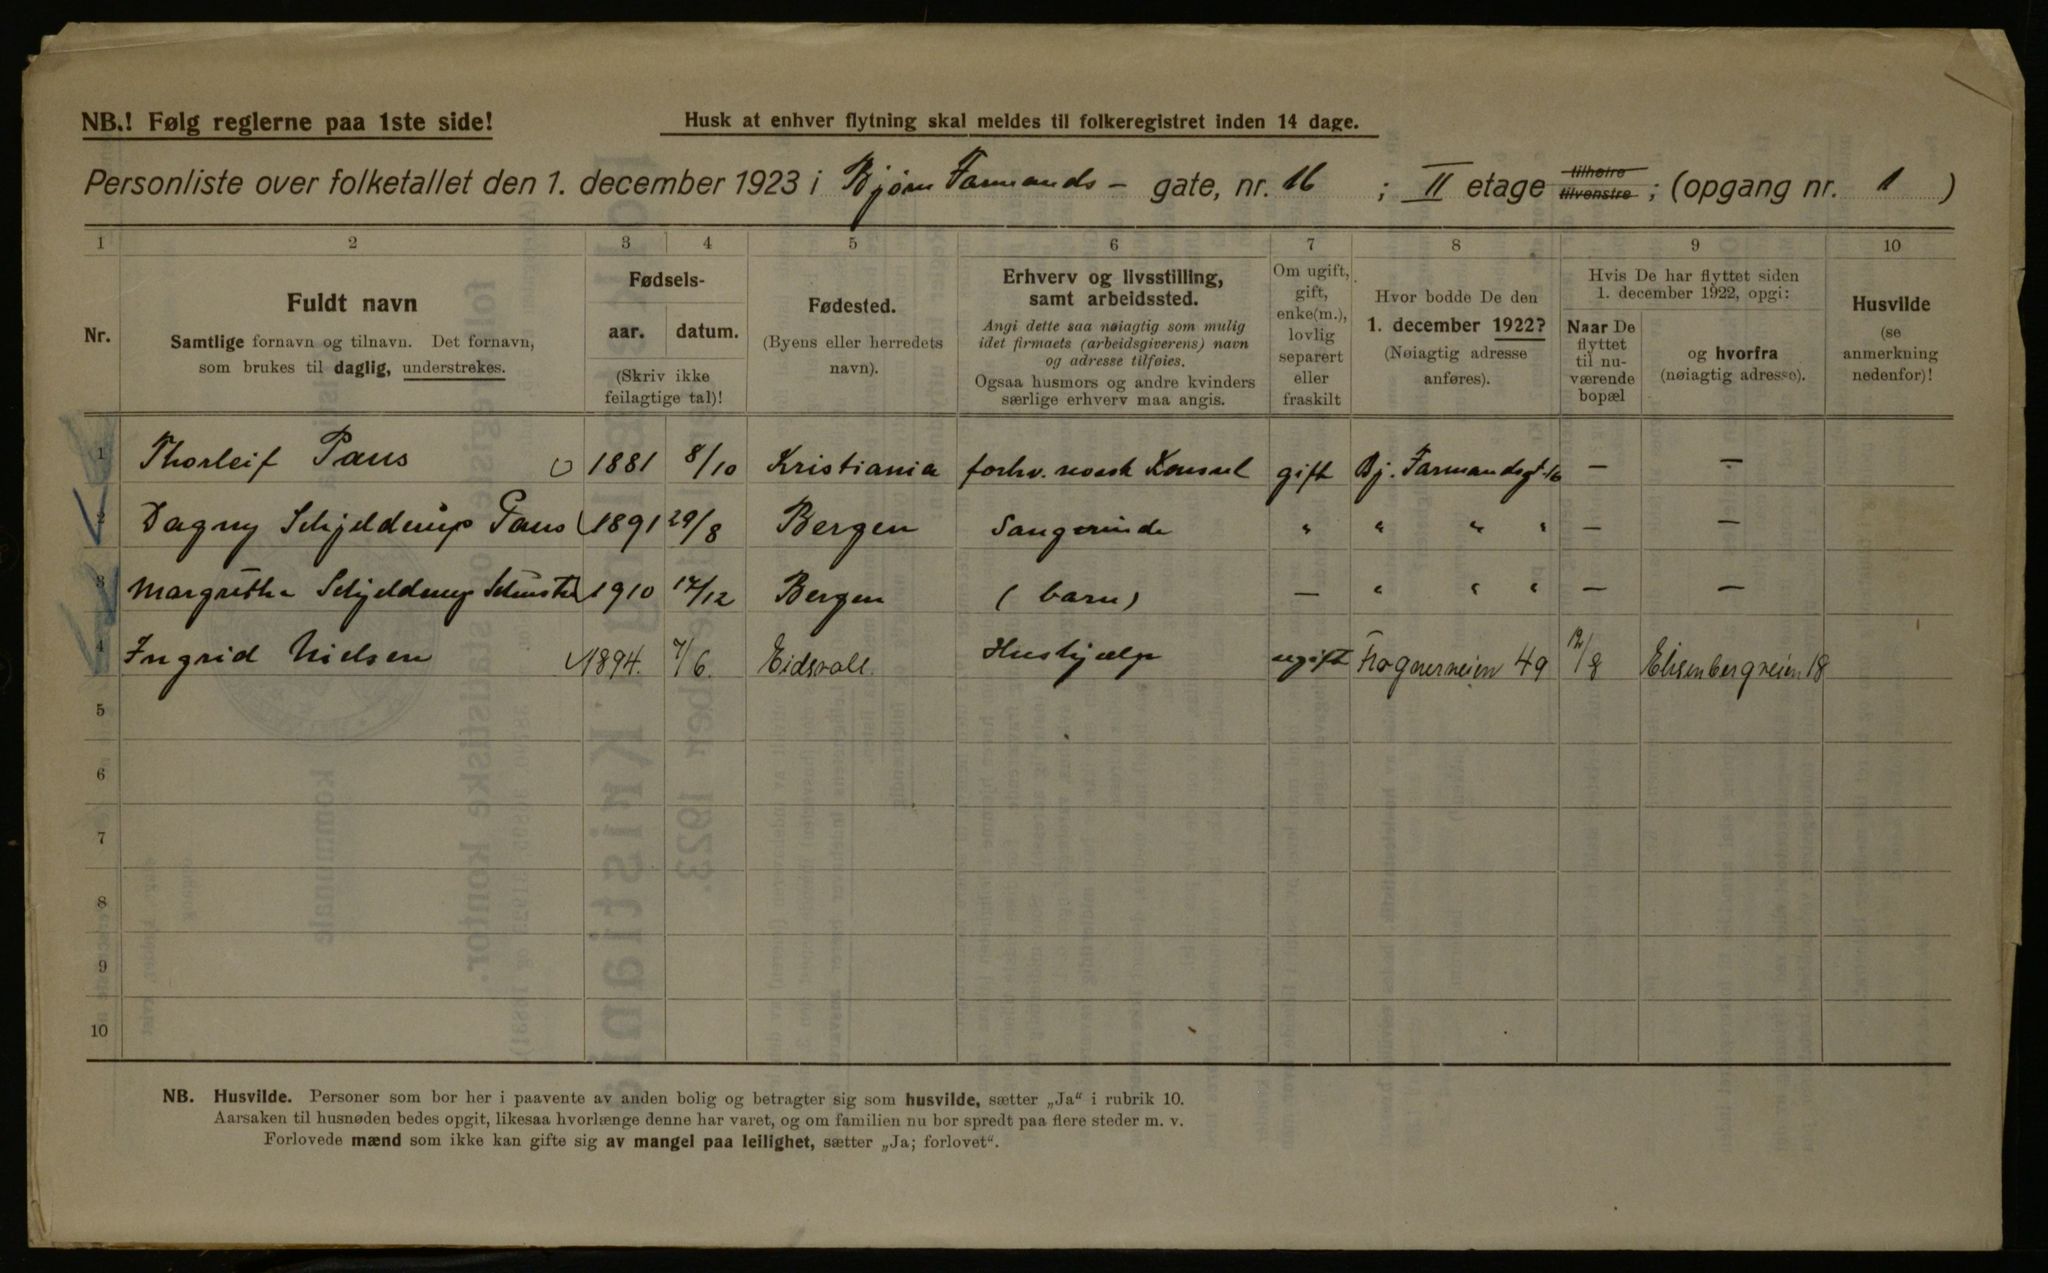 NB.! Følg reglerne paa 1ste side!
Husk at enhver flytning skal meldes til folkeregistret inden 14 dage.
Personliste over folketallet den 1. december 1923 i Bjørn Farmands- gate, nr. 16 ; II etage tilhøire tilvenstre ; (opgang nr. 1 )
1 2 3 4 5 6 7 8 9 10
Nr.
Fuldt navn
Samtlige fornavn og tilnavn. Det fornavn,
som brukes til daglig, understrekes.
Fødsels-
aar. datum.
(Skriv ikke
feilagtige tal)!
Fødested.
(Byens eller herredets
navn).
Erhverv og livsstilling,
samt arbeidssted.
Angi dette saa nøiagtig som mulig
idet firmaets (arbeidsgiverens) navn
og adresse tilføies.
Ogsaa husmors og andre kvinders
særlige erhverv maa angis.
Om ugift,
gift,
enke(m.),
lovlig
separert
eller
fraskilt
Hvor bodde De den
1. december 1922?
(Nøiagtig adresse
anføres).
Hvis De har flyttet siden
1. december 1922, opgi:
Naar De
flyttet
til nu-
værende
bopæl
og hvorfra
(nøiagtig adresse).
Husvilde
(se
anmerkning
nedenfor)!
1 Thorleif Paus 1881 8/10 Kristiania forhv. norsk Konsul gift Bj. Farmandsgt. 16 — —
2 Dagny Schjelderup Paus 1891 29/8 Bergen Sangerinde " " " " — —
3 Margrethe Schjelderup 1910 17/12 Bergen (barn) — " " " — —
4 Ingrid Nielsen 1894. 7/6. Eidsvoll. Hushjælp ugift Frognerveien 49 12/8 Elisenbergveien 18
5
6
7
8
9
10
NB. Husvilde. Personer som bor her i paavente av anden bolig og betragter sig som husvilde, sætter „Ja“ i rubrik 10.
Aarsaken til husnøden bedes opgit, likesaa hvorlænge denne har varet, og om familien nu bor spredt paa flere steder m. v.
Forlovede mænd som ikke kan gifte sig av mangel paa leilighet, sætter „Ja; forlovet“.